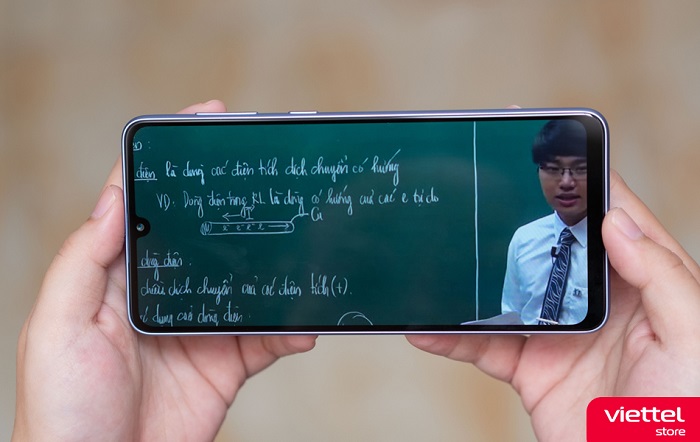 điện là dòng các điện tích dịch chuyển có hướng
VD: Dòng điện trong KL là dòng có hướng của các e tự do
I
Cu
e⁻ e⁻ e⁻
dòng điện.
chiều dịch chuyển của các điện tích (+).
dụng của dòng điện:
viettel
store